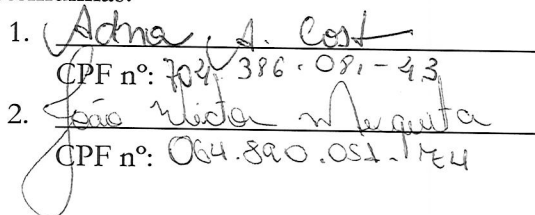 1. Adna A. Cost
CPF nº: 704.386.081-43
2. João Victor Mesquita
CPF nº: 064.890.051-74